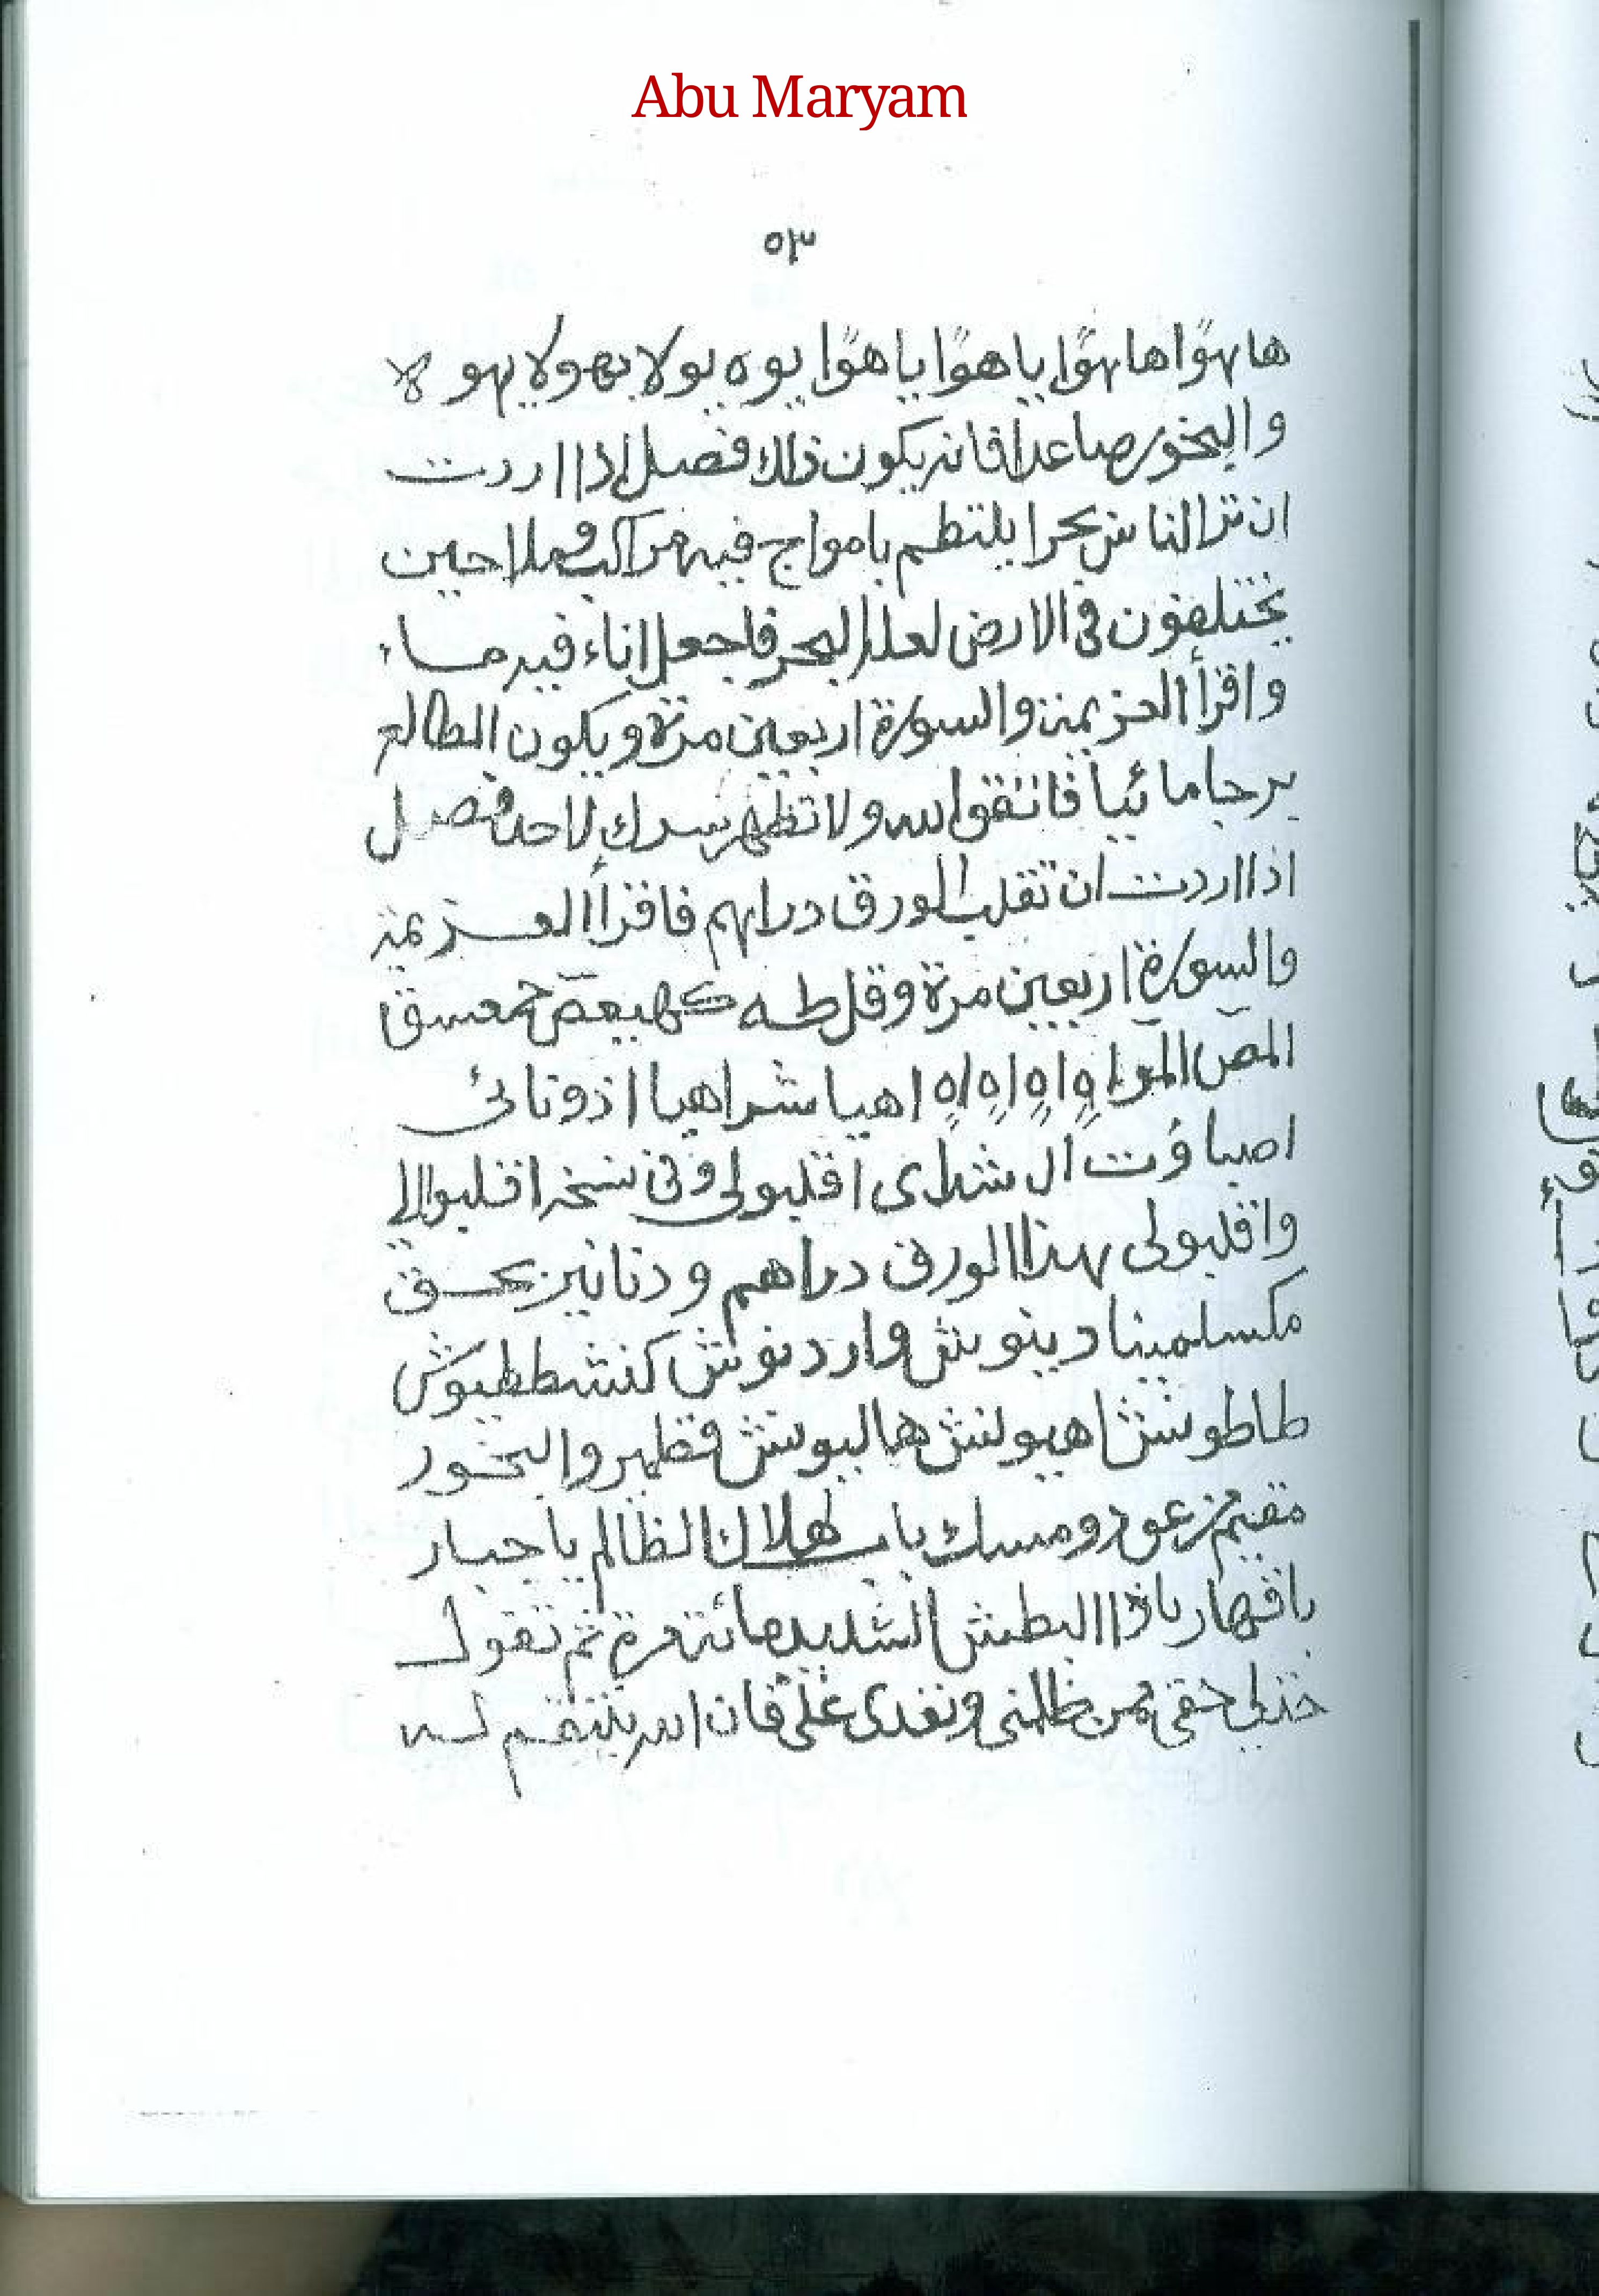 Abu Maryam
٥٣
ها يهوًا ها يهوًا يا هوًا يا هوًا يوه يولا بهولا يهو لا
والبخور صاعدا فانه يكون ذلك فصل اذا اردت
ان ترا الناس بحرا يلتطم بامواج فيه مراكب وملاحين
يختلفون فى الارض البحر فاجعل اناء فيه ماء
واقرأ العزيمة والسورة اربعين مرة ويكون الطالع
برجا مائيا فاتقوا الله ولا تظهر سرك لاحد فصل
اذا اردت ان تقلب الورق دراهم فاقرأ العزيمة
والسورة اربعين مرة وقل طه كهيعص حمعسق
المص المر اهٍ اهٍ اهٍ اهٍ اهيا شراهيا اذونائى
اصباؤت ال شداى اقلبولى وفى نسخه اقلبوا لي
واقلبولى هذا الورق دراهم ودنانير بحق
مكسلمينا دينوش واردنوش كنشططيوش
طاطونش اهيونش هاليونش قطمير والبخور
مقيم من عود ومسك باب هلاك الظالم يا جبار
يا قهار يا ذا البطش الشديد مائة مرة ثم تقول
خذ لى حقى ممن ظلمنى وتعدى علىّ فان الله ينتقم لك